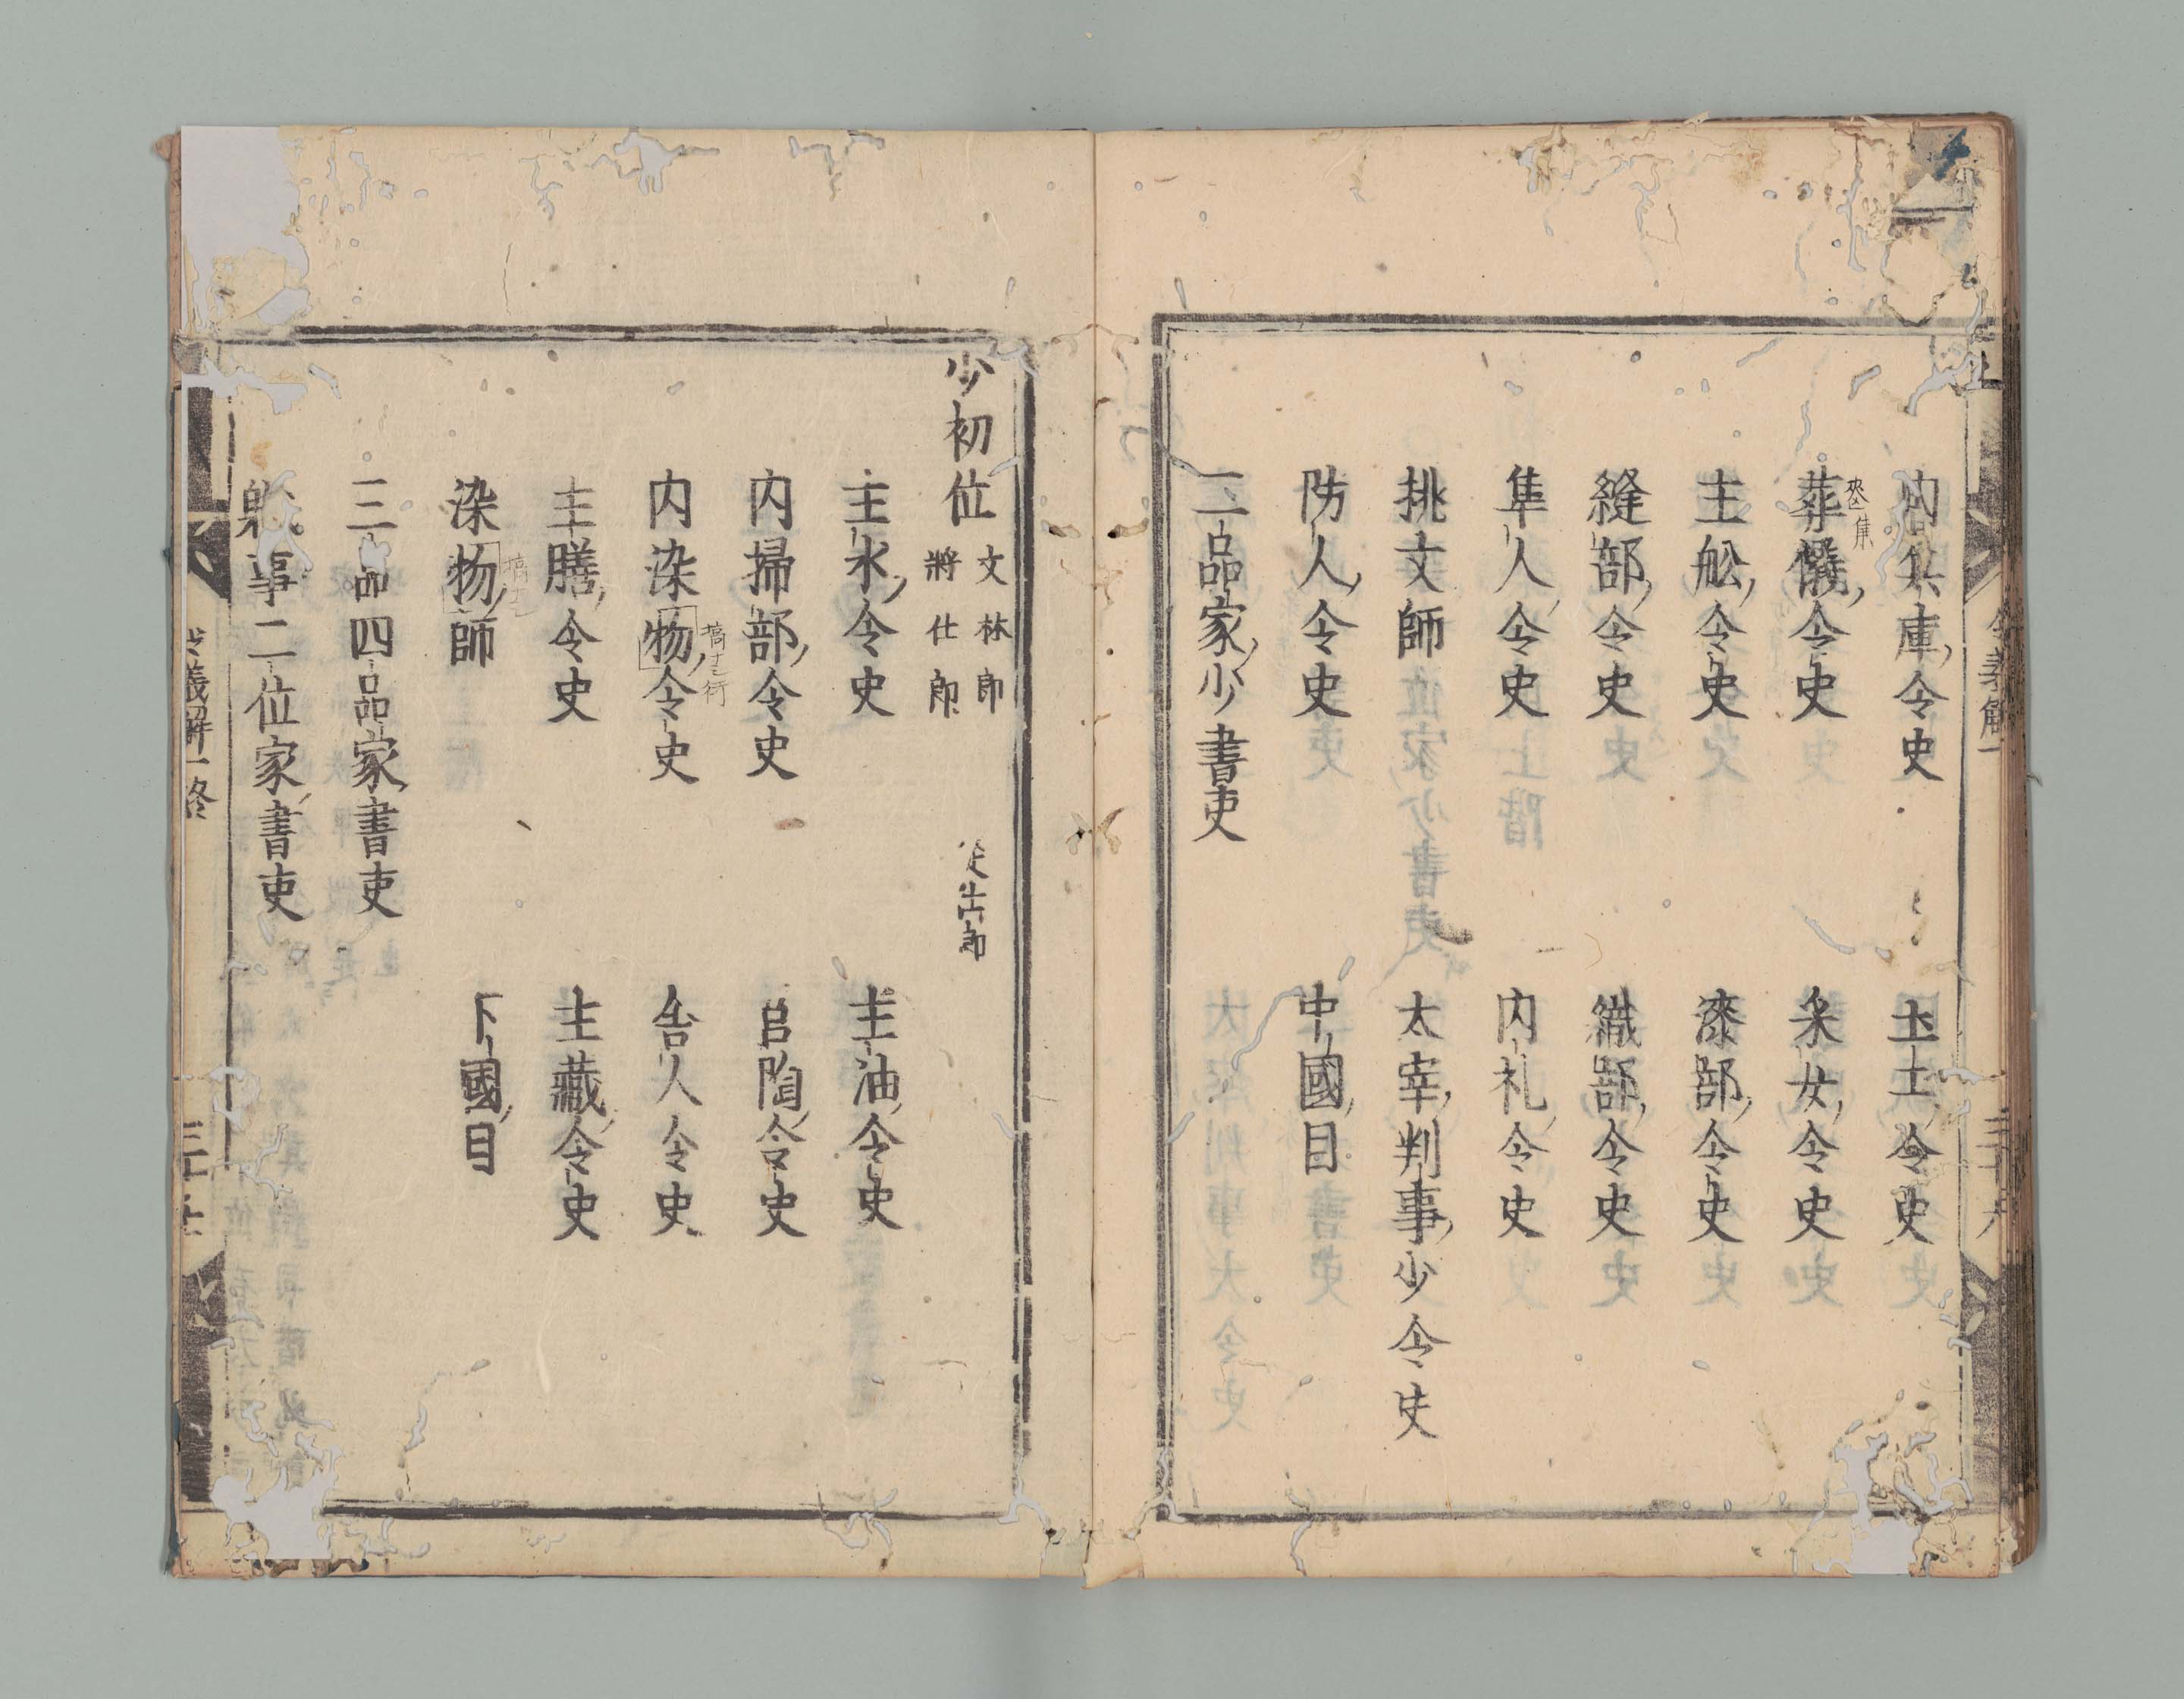 内兵庫令史　土工令史
葬儀令史　采女令史
主舩令史　漆部令史
縫部令史　織部令史
隼人令史　内礼令史
挑文師　太宰判事少令史
防人令史　中國目
二品家少書吏
少初位
文林郎
將仕郎
主水令史　主油令史
内掃部令史　官陶令史
内染物令史　舎人令史
主膳令史　主藏令史
染物師　下國目
三品四品家書吏
軄事二位家書吏
令義解一終